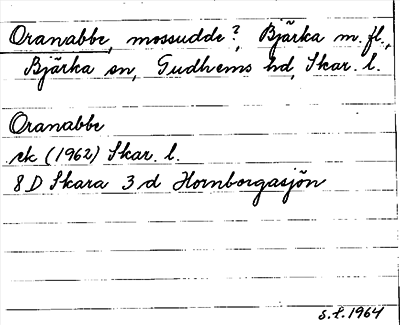 Oranabbe, mossudde?, Bjärka m. fl.,
Bjärka sn, Gudhems hd, Skar. l.
Oranabbe
rk (1962) Skar. l.
8 D Skara 3 d Hornborgasjön
S.L. 1964